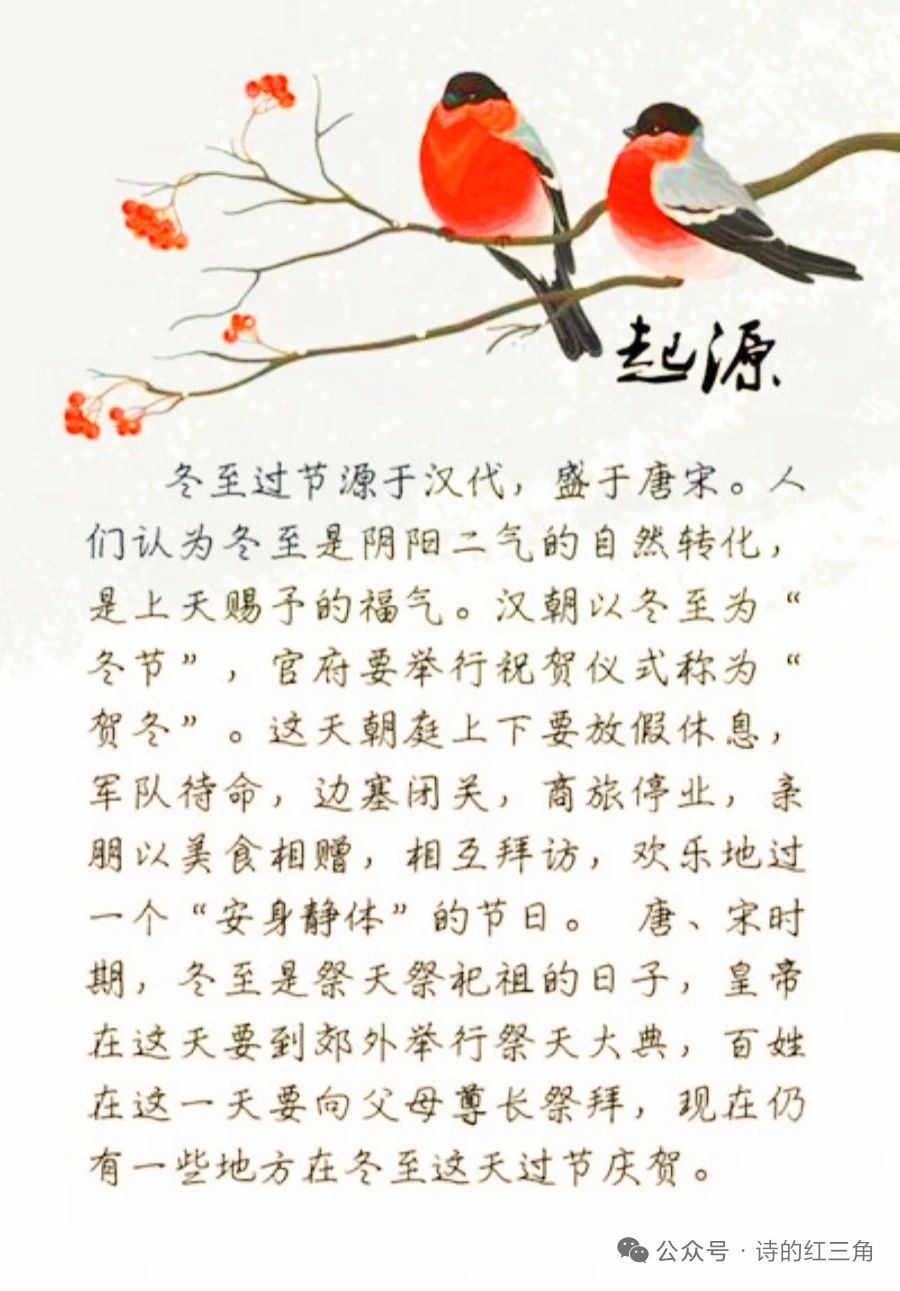 起源
冬至过节源于汉代，盛于唐宋。人
们认为冬至是阴阳二气的自然转化，
是上天赐予的福气。汉朝以冬至为“
冬节”，官府要举行祝贺仪式称为“
贺冬”。这天朝庭上下要放假休息，
军队待命，边塞闭关，商旅停业，亲
朋以美食相赠，相互拜访，欢乐地过
一个“安身静体”的节日。 唐、宋时
期，冬至是祭天祭祀祖的日子，皇帝
在这天要到郊外举行祭天大典，百姓
在这一天要向父母尊长祭拜，现在仍
有一些地方在冬至这天过节庆贺。
公众号·诗的红三角